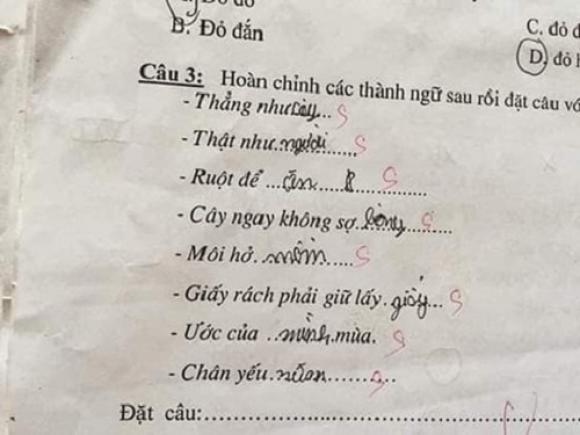 B. Đỏ đắn
C. đỏ đ
D. đỏ h
Câu 3: Hoàn chỉnh các thành ngữ sau rồi đặt câu vớ
- Thẳng như cây... S
- Thật như người...... S
- Ruột để ...ăn ........... S
- Cây ngay không sợ ........ S
- Môi hở. mồm..... S
- Giấy rách phải giữ lấy. giấy... S
- Ước của ..mình.mùa. S
- Chân yếu......... S
Đặt câu:........................